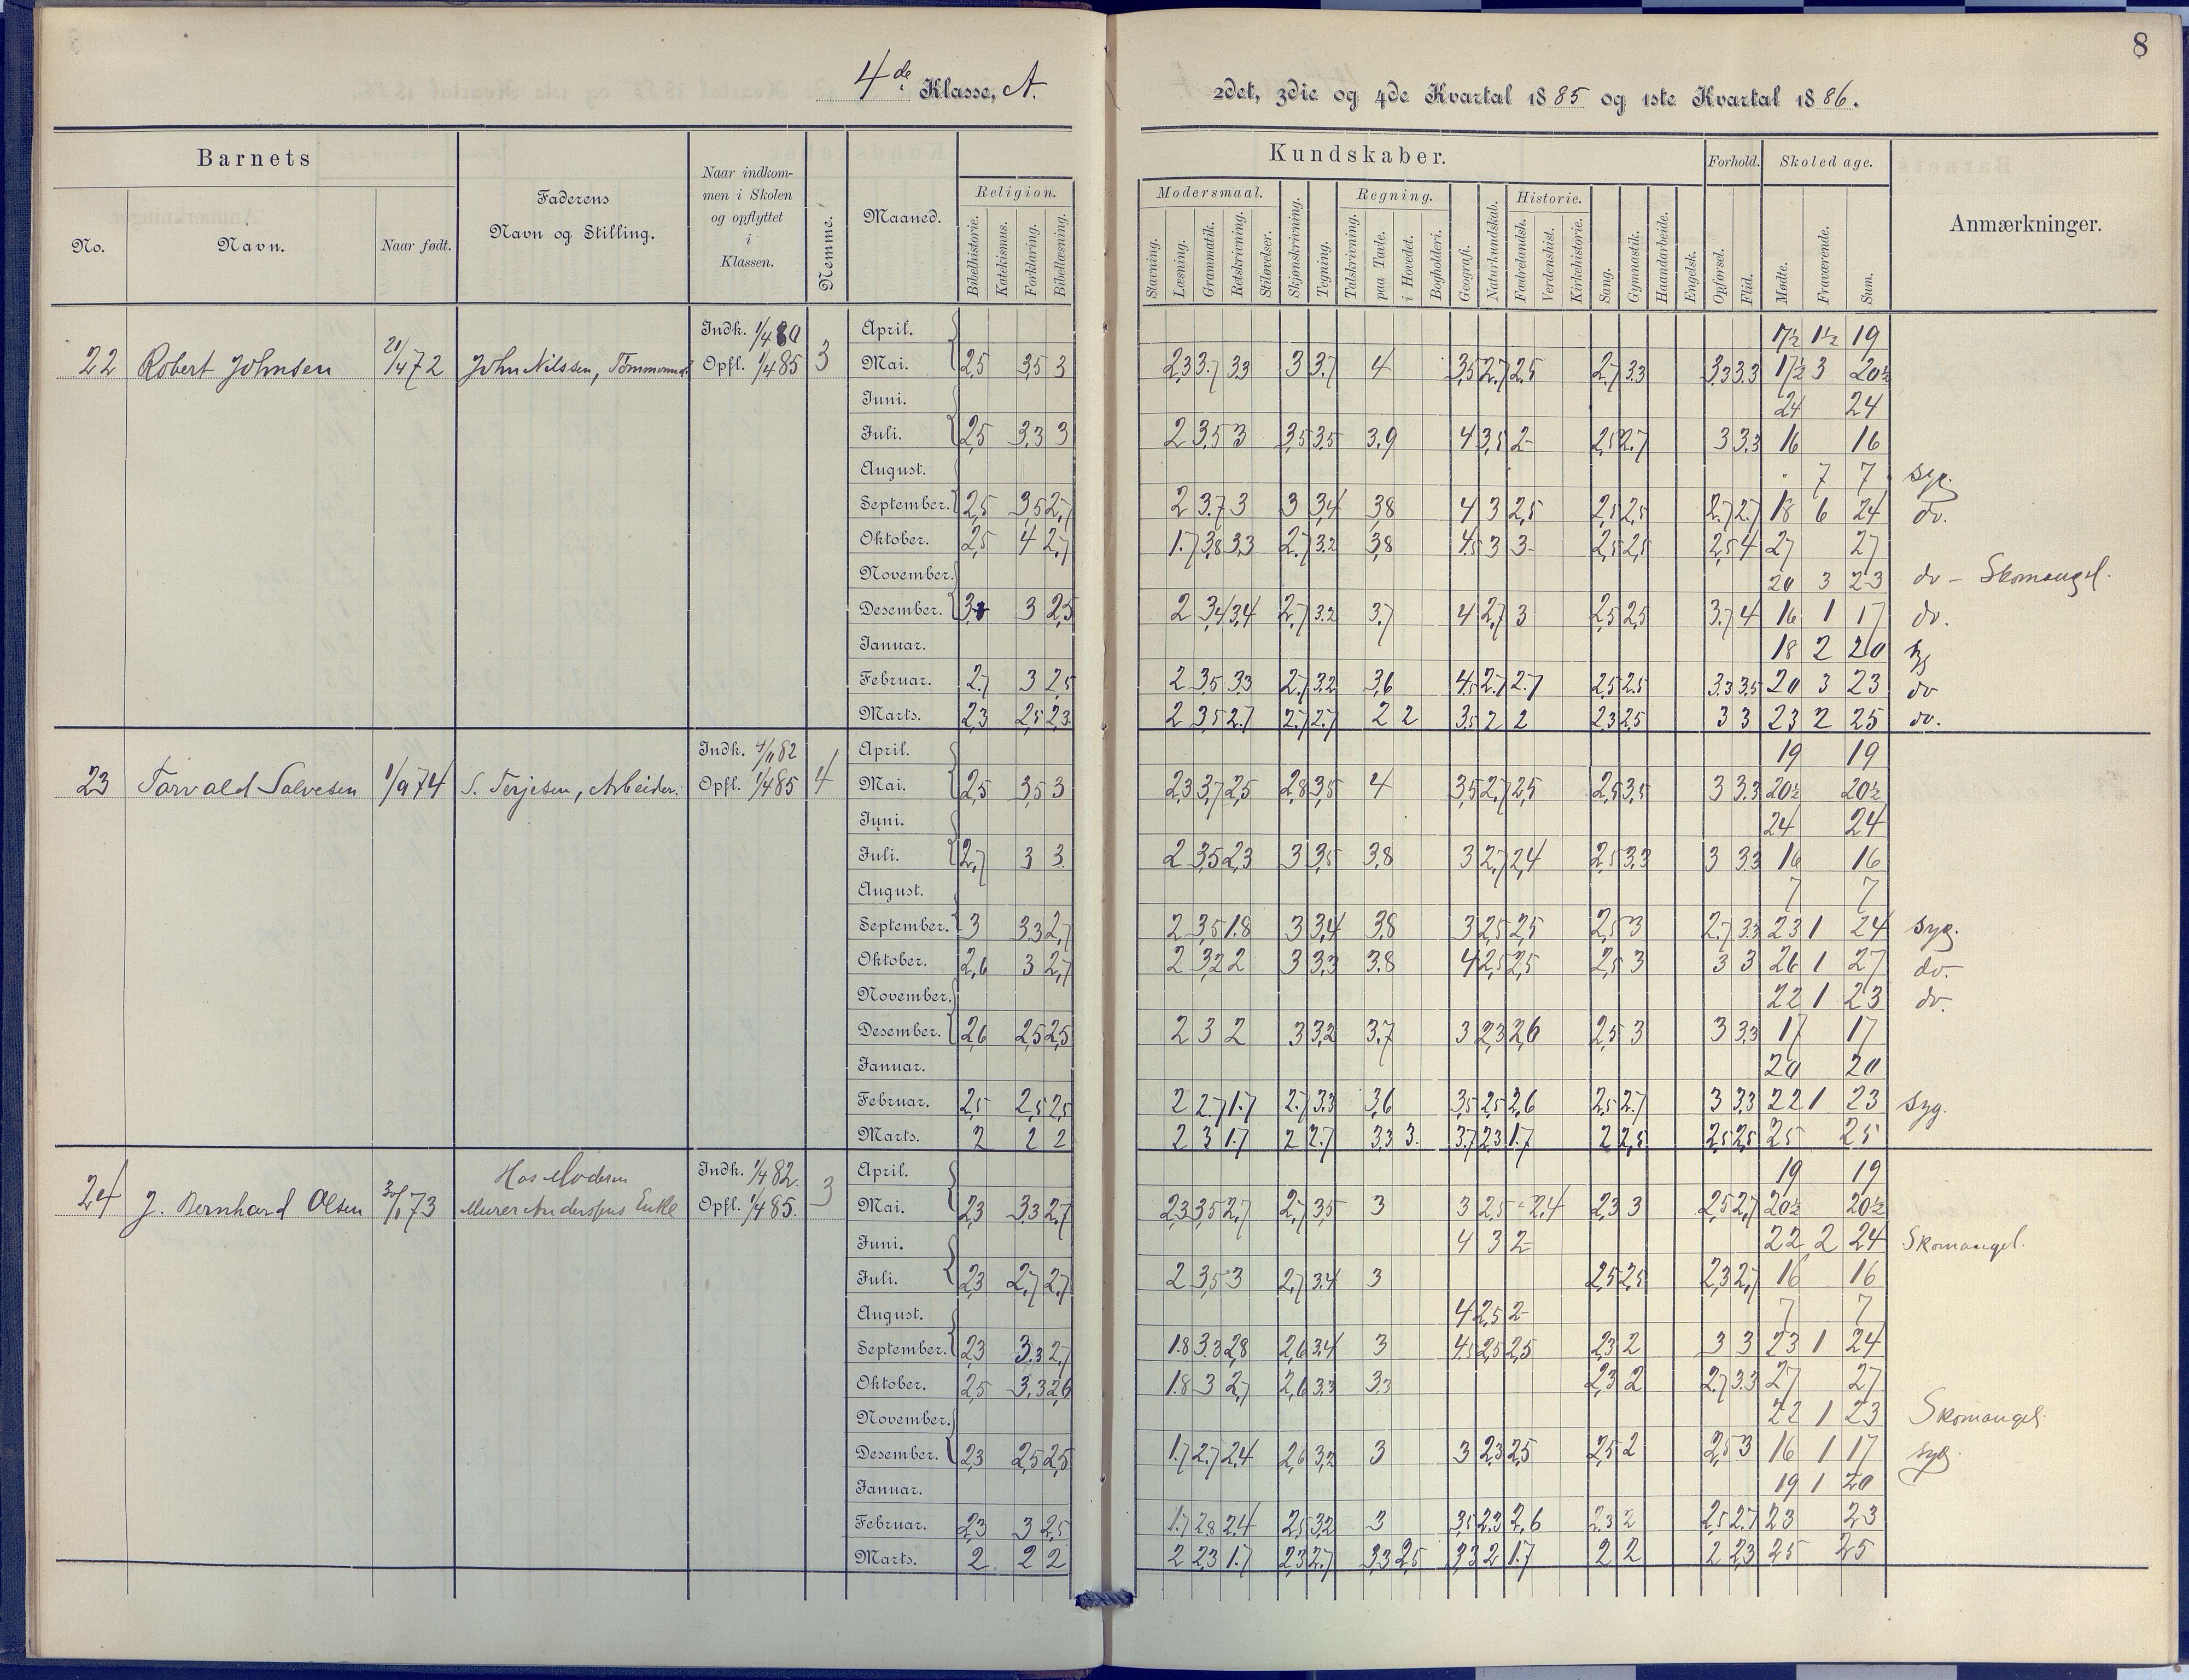 8
4de Klasse, A.
2det, 3die og 4de Kvartal 1885 og 1ste Kvartal 1886.
Barnets
No.
Navn.
Naar født.
Faderens
Navn og Stilling.
Naar indkom-
men i Skolen
og opflyttet
i
Klassen.
Nemme.
Maaned.
Religion.
Bibelhistorie. Katekismus. Forklaring. Bibellæsning.
Kundskaber.
Modersmaal.
Stavning. Læsning. Grammatik. Retskrivning. Stiløvelser.
Skjønskrivning. Tegning.
Regning.
Talskrivning. paa Tavle. i Hovedet. Bogholderi.
Geografi. Naturkundskab.
Historie.
Fædrelandsh. Verdenshist. Kirkehistorie.
Sang. Gymnastik. Haandarbeide. Engelsk.
Forhold.
Opførsel. Flid.
Skoledage.
Mødte. Fraværende. Sum.
Anmærkninger.
22 Robert Johnsen 21/4 72 John Nilssen, Tømmermd. Indk. 1/4 80 Opfl. 1/4 85 3
April. 17½ 1½ 19
Mai. 2,5 3,5 3 2,3 3.7 3,3 3 3.7 4 3,5 2.7 2,5 2.7 3.3 3.3 3.3 17½ 3 20½
Juni. 24 24
Juli. 2,5 3,3 3 2 3,5 3 3,5 3,5 3.9 4 3,5 2 2,5 2.7 3 3.3 16 16
August. 7 7 syg.
September. 2,5 3,5 2,7 2 3.7 3 3 3,4 3,8 4 3 2,5 2,5 2,5 2.7 2.7 18 6 24 do.
Oktober. 2,5 4 2,7 1.7 3,8 3,3 2.7 3.2 3,8 4,5 3 3 2,5 2,5 2,5 4 27 27
November. 20 3 23 do - Skomangel.
Desember. 3 2,5 2 3,4 3,4 2,7 3.2 3.7 4 2,7 3 2,5 2,5 3.7 4 16 1 17 do.
Januar. 18 2 20
Februar. 2.7 3 2,5 2 3,5 3,3 2.7 3.2 3,6 4,5 2.7 2.7 2,5 2.5 3.3 3.5 20 3 23 do
Marts. 2,3 2,5 2,3 2 3,5 2.7 2.7 2.7 2 2 3,5 2 2 2,3 2,5 3 3 23 2 25 do.
23 Torvald Salvesen 1/9 74 S. Terjesen, Arbeider. Indk. 4/11 82 Opfl. 1/4 85 4
April. 19 19
Mai. 2,5 3,5 3 2,3 3,7 2,5 2,8 3,5 4 3,5 2,7 2,5 2,5 3,5 3 3.3 20½ 20½
Juni. 24 24
Juli. 2,7 3 3 2 3,5 2,3 3 3,5 3,8 3 2,7 2,4 2,5 3,3 3 3.3 16 16
August. 7 7
September. 3 3,3 2,7 2 3,5 1.8 3 3,4 3,8 3 2,5 2,5 2,5 3 2.7 3.3 23 1 24 syg.
Oktober. 2,6 3 2,7 2 3,2 2 3 3,3 3.8 4 2,5 2,5 2,5 3 3 3 26 1 27 do.
November. 22 1 23 do.
Desember. 2,6 2,5 2,5 2 3 2 3 3,2 3.7 3 2,3 2,6 2,5 3 3 3.3 17 17
Januar. 20 20
Februar. 2,5 2,5 2,5 2 2.7 1.7 2.7 3.3 3,6 3,5 2,5 2,6 2,5 2.7 3 3.3 22 1 23 syg.
Marts. 2 2 2 2 3 1.7 2 2.7 3.3 3. 3.7 2.3 1.7 2 2,5 2,5 2,5 25 25
24 J. Bernhard Olsen 30/1 73 Hos Modern Murer Anderssens Enke Indk. 1/4 82. Opfl. 1/4 85. 3
April. 19 19
Mai. 2,3 3,3 2.7 2,3 3,5 2,7 2,7 3,5 3 3 2,5 2,4 2,3 3 2,5 2,7 20½ 20½
Juni. 4 3 2 22 2 24 Skomangel.
Juli. 2,3 2,7 2,7 2 3,5 3 2,7 3.4 3 2,5 2,5 2,3 2,7 16 16
August. 4 2,5 2 7 7
September. 2,3 3.3 2,7 1.8 3.3 2,8 2,6 3.4 3 4,5 2,5 2,5 2,3 2 3 3 23 1 24
Oktober. 2,5 3,3 2,6 1.8 3 2,7 2,6 3.3 3,3 2,3 2 2.7 3.3 27 27
November. 22 1 23 Skomangel.
Desember. 2,3 2,5 2,5 1.7 2.7 2.4 2,6 3,2 3 3 2,3 2,5 2,5 2 2,5 3 16 1 17 syg.
Januar. 19 1 20
Februar. 2,3 3 2,5 1.7 2.8 2.4 2,5 3,2 3 3,5 2,3 2,6 2,3 2 2,5 2.7 23 23
Marts. 2. 2 2 2 2,3 1.7 2,3 2.7 3,3 2,5 3,3 2 1.7 2 2 2 2,3 25 25